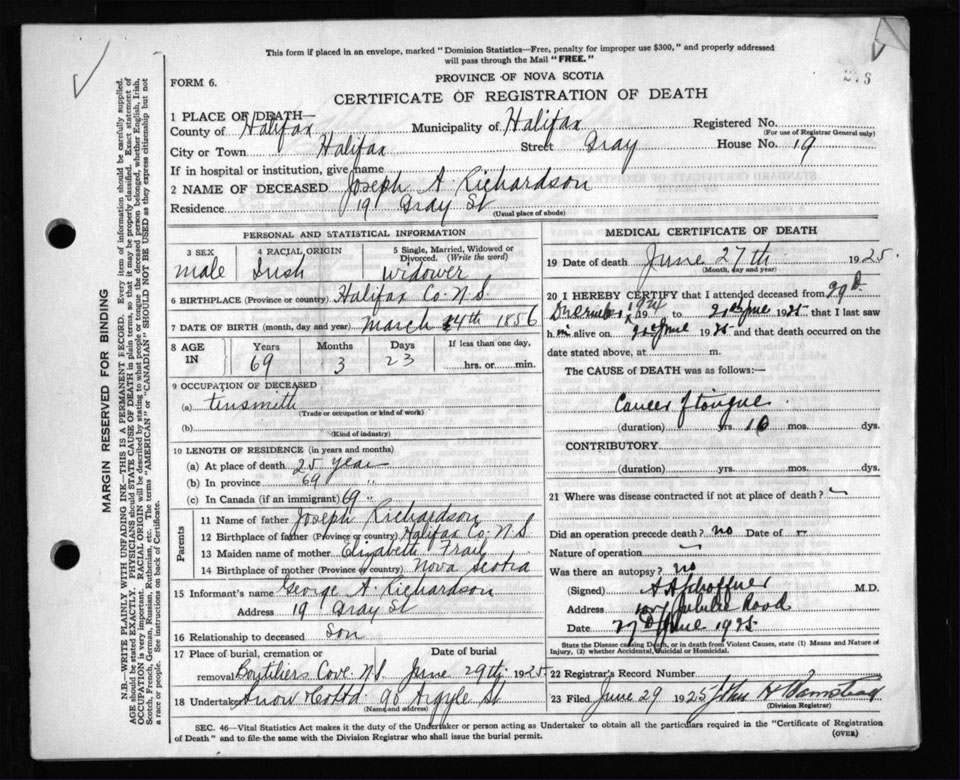 This form if placed in an envelope, marked "Dominion Statistics—Free, penalty for improper use $300," and properly addressed
will pass through the Mail "FREE."
PROVINCE OF NOVA SCOTIA
FORM 6.
CERTIFICATE OF REGISTRATION OF DEATH
1 PLACE OF DEATH—
County of Halifax Municipality of Halifax Registered No.
(For use of Registrar General only)
City or Town Halifax Street Gray House No. 19
If in hospital or institution, give name
2 NAME OF DECEASED Joseph A. Richardson
Residence 19 Gray St
(Usual place of abode)
PERSONAL AND STATISTICAL INFORMATION
3 SEX 4 RACIAL ORIGIN 5 Single, Married, Widowed or
Divorced. (Write the word)
male Irish widower
6 BIRTHPLACE (Province or country) Halifax Co. N S
7 DATE OF BIRTH (month, day and year) March 4th 1856
8 AGE IN Years Months Days If less than one day,
69 3 23 hrs. or min.
9 OCCUPATION OF DECEASED
(a) tinsmith
(Trade or occupation or kind of work)
(b)
(Kind of industry)
10 LENGTH OF RESIDENCE (in years and months)
(a) At place of death 25 year
(b) In province 69 "
(c) In Canada (if an immigrant) 69 "
Parents
11 Name of father Joseph Richardson
12 Birthplace of father (Province or country) Halifax Co. N S
13 Maiden name of mother Elizabeth Frail
14 Birthplace of mother (Province or country) Nova Scotia
15 Informant's name George A. Richardson
Address 19 Gray St
16 Relationship to deceased Son
17 Place of burial, cremation or Date of burial
removal Boutiliers Cove N.S. June 29th 1925
18 Undertaker Snow & Co Ltd 90 Argyle St
(Name and address)
MEDICAL CERTIFICATE OF DEATH
19 Date of death June 27th 1925.
(Month, day and year)
20 I HEREBY CERTIFY that I attended deceased from 29th
December 1924 to 20th June 1925 that I last saw
him alive on 20th June 1925 and that death occurred on the
date stated above, at m.
The CAUSE of DEATH was as follows:—
Cancer of tongue
(duration) yrs. 16 mos. dys.
CONTRIBUTORY.
(duration) yrs. mos. dys.
21 Where was disease contracted if not at place of death?
Did an operation precede death? no Date of -
Nature of operation
Was there an autopsy? no
(Signed) M.D.
Address Jubilee Road
Date 27th June 1925
State the Disease causing Death, or in death from Violent Causes, state (1) Means and Nature of
Injury, (2) whether Accidental, Suicidal or Homicidal.
22 Registrar's Record Number
23 Filed June 29 1925 John H Bamstead
(Division Registrar)
SEC. 46—Vital Statistics Act makes it the duty of the Undertaker or person acting as Undertaker to obtain all the particulars required in the "Certificate of Registration
of Death" and to file the same with the Division Registrar who shall issue the burial permit.
(OVER)
MARGIN RESERVED FOR BINDING
N.B.—WRITE PLAINLY WITH UNFADING INK—THIS IS A PERMANENT RECORD. Every item of information should be carefully supplied.
AGE should be stated EXACTLY. PHYSICIANS should STATE CAUSE OF DEATH in plain terms, so that it may be properly classified. Exact statement of
OCCUPATION is very important. RACIAL ORIGIN will be described by stating to what people or tongue the deceased person belonged, whether English, Irish,
Scotch, French, German, Russian, Ruthenian, etc. The terms "AMERICAN" or "CANADIAN" SHOULD NOT BE USED as they express citizenship but not
a race or people. See instructions on back of Certificate.